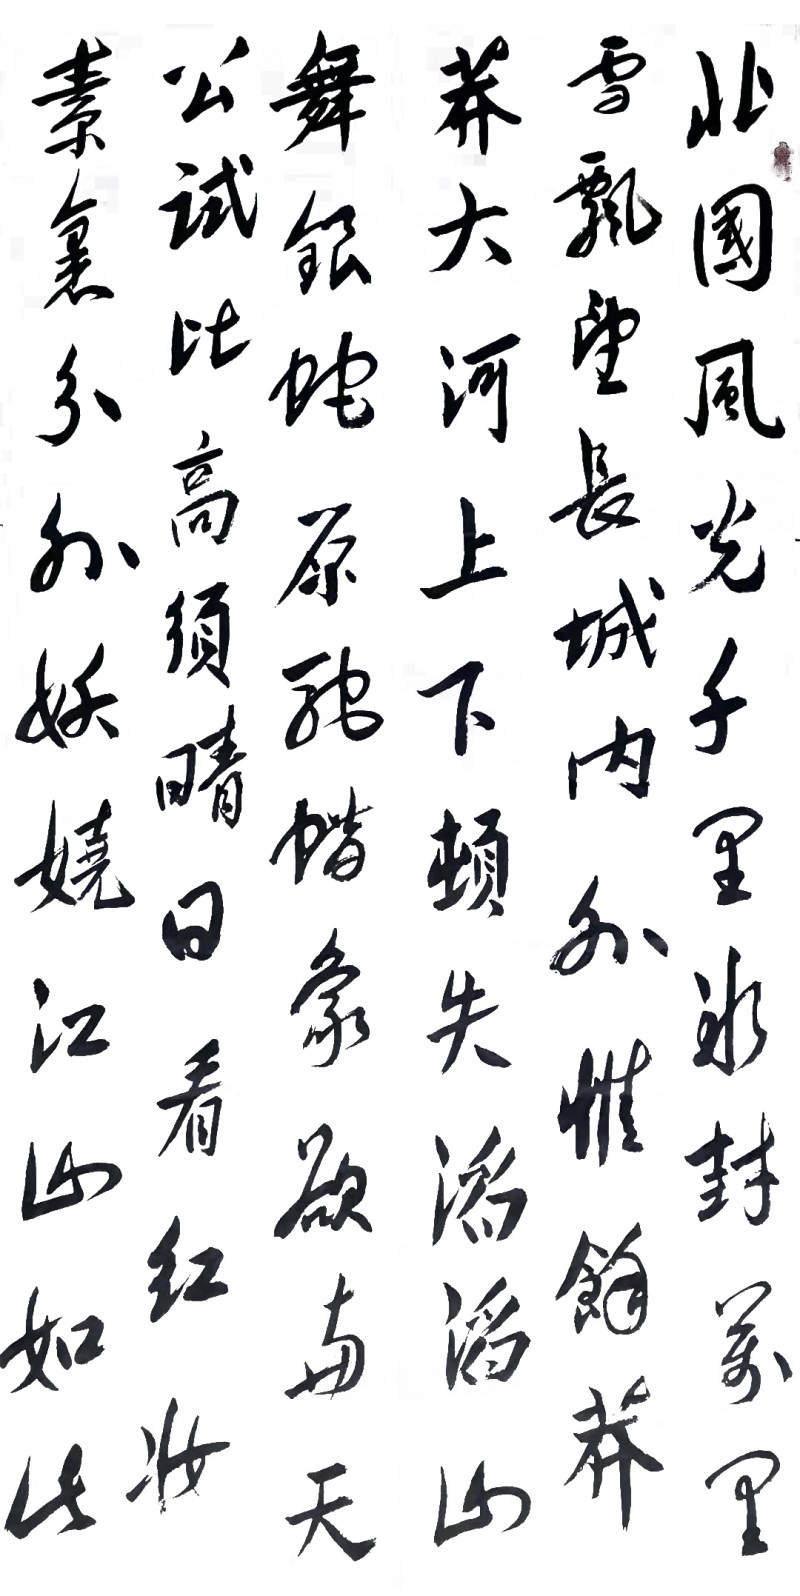 北國風光千里冰封萬里
雪飄望長城内外惟餘莽
莽大河上下頓失滔滔山
舞銀蛇原馳蠟象欲與天
公試比高須晴日看紅妝
素裹分外妖嬈江山如此